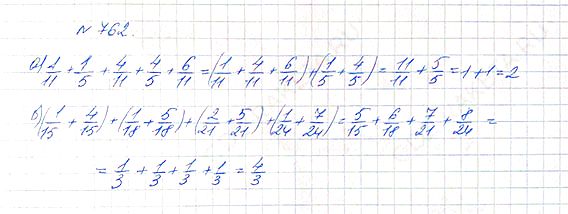 № 762.
а) 1/11 + 1/5 + 4/11 + 4/5 + 6/11 = (1/11 + 4/11 + 6/11) + (1/5 + 4/5) = 11/11 + 5/5 = 1 + 1 = 2
б) (1/15 + 4/15) + (1/18 + 5/18) + (2/21 + 5/21) + (1/24 + 7/24) = 5/15 + 6/18 + 7/21 + 8/24 =
= 1/3 + 1/3 + 1/3 + 1/3 = 4/3